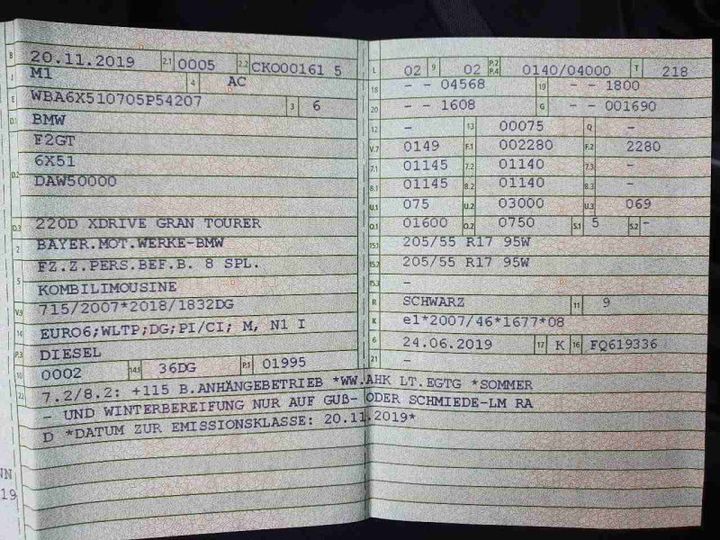 B 20.11.2019 2.1 0005 2.2 CK000161 5
J M1 4 AC
E WBA6X510705P54207 3 6
D.1 BMW
F2GT
D.2 6X51
DAW50000
D.3 220D XDRIVE GRAN TOURER
2 BAYER.MOT.WERKE-BMW
FZ.Z.PERS.BEF.B. 8 SPL.
5 KOMBILIMOUSINE
V.9 715/2007*2018/1832DG
14 EURO6;WLTP;DG;PI/CI; M, N1 I
P.3 DIESEL
10 0002 14.1 36DG P.1 01995
L 02 9 02 P.2 P.4 0140/04000 T 218
18 - - 04568 19 - - 1800
20 - - 1608 G - - 001690
12 - 13 00075 Q -
V.7 0149 F.1 002280 F.2 2280
7.1 01145 7.2 01140 7.3 -
8.1 01145 8.2 01140 8.3 -
U.1 075 U.2 03000 U.3 069
O.1 01600 O.2 0750 S.1 5 S.2 -
15.1 205/55 R17 95W
15.2 205/55 R17 95W
15.3 -
R SCHWARZ 11 9
K e1*2007/46*1677*08
6 24.06.2019 17 K 16 FQ619336
21 -
22 7.2/8.2: +115 B.ANHÄNGEBETRIEB *WW.AHK LT.EGTG *SOMMER
- UND WINTERBEREIFUNG NUR AUF GUß- ODER SCHMIEDE-LM RA
D *DATUM ZUR EMISSIONSKLASSE: 20.11.2019*
NN
19